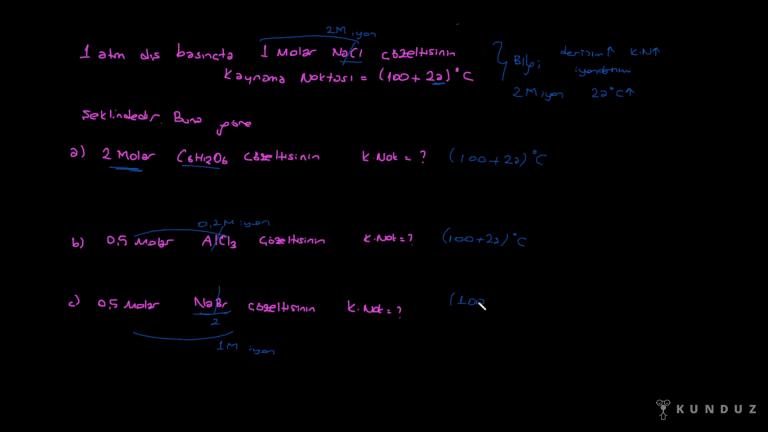 2M iyon
1 atm dış basınçta 1 Molar NaCl çözeltisinin
Kaynama Noktası = (100 + 2a)°C
Bilgi derişim↑ K.N↑
2 M iyon 2a°C↑
Şeklindedir. Buna göre
a) 2 Molar C6H12O6 çözeltisinin K.Nok = ? (100 + 2a)°C
0,2 M iyon
b) 0,5 Molar AlCl3 çözeltisinin K.Nok = ? (100 + 2a)°C
c) 0,5 Molar NaBr çözeltisinin K.Nok = ? (100
2
1M iyon
KUNDUZ